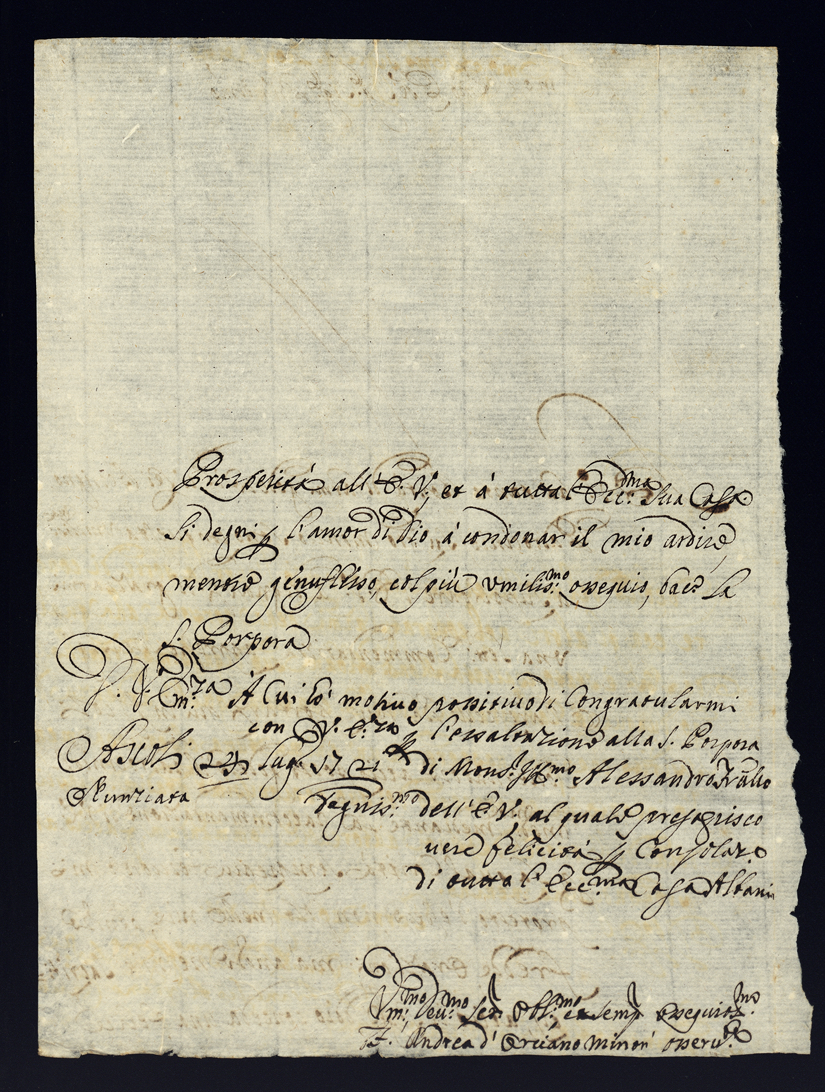 Prosperità all'E. V., et à tutta l'Ecc.ma Sua Casa
Si degni p l'amor di Dio à condonar il mio ardire,
mentre genuflesso, col più umiliss.mo ossequio, bacio la
S. Porpora
D. V. Em.za A Cui hò motivo positivo di Congratularmi
con V. E.za p l'essaltazione alla S. Porpora
Ascoli 24 lug. 1721 di Mons. Ill.mo Alessandro Frãllo
Nunziata degniss.mo dell'E. V. al quale preghrisco
vere felicità p Consolaz.e
di tutta l'Ecc.ma Casa Albani
Um.mo Dev.mo Ser. Obl.mo et semp ossequios.mo
F. Andrea d'Orciano minor osserv.